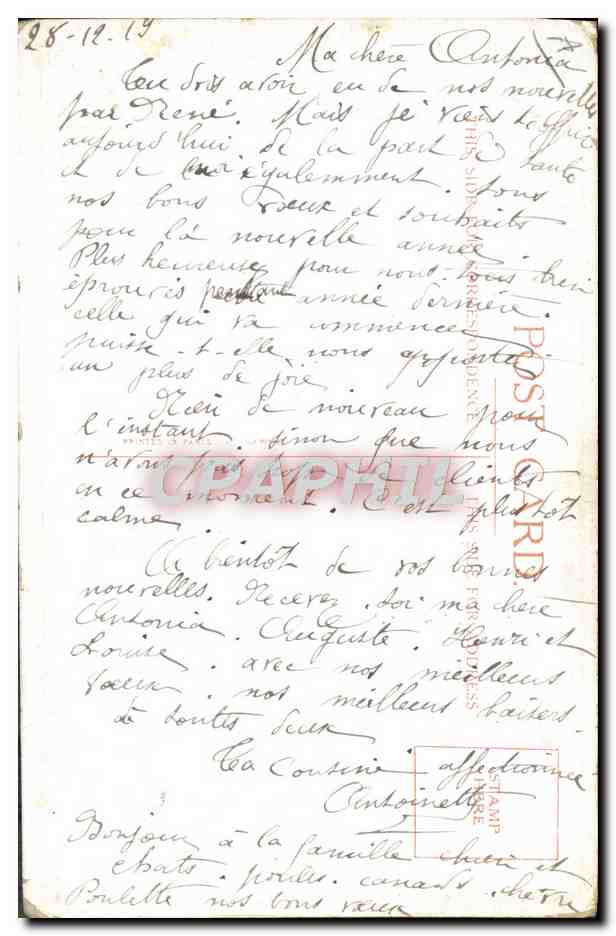 28-12-19
Ma chère Antonia
Tu dois avoir eu de nos nouvelles
par René. Mais je viens t'offrir
aujourd'hui de la part de tante
et de moi également. tous
nos bons vœux et souhaits
pour la nouvelle année.
Plus heureuse pour nous tous bien
éprouvés pendant année dernière.
celle qui va commencer
puisse-t-elle nous apporter
un plus de joie
Rien de nouveau pour
l'instant. sinon que nous
n'avons pas trop de clients
en ce moment. C'est plustôt
calme.
A bientôt de vos bonnes
nouvelles. Recevez. toi ma chère
Antonia. Auguste. Henri et
Louise. avec nos meilleurs
vœux. nos meilleurs baisers.
à toutes deux
Ta cousine affectionnée
Antoinette
Bonjour à la famille chien et
chats. poules. canards. chèvre
Poulette nos bons vœux
POST CARD.
THIS SIDE FOR CORRESPONDENCE
THIS SIDE FOR ADDRESS
PRINTED IN PARIS
STAMP
HERE
CPARPHIL